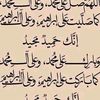 اللهم صل على محمد وعلى آل محمد
كما صليت على إبراهيم وعلى آل إبراهيم
إنك حميد مجيد
بارك على محمد وعلى آل محمد
كما باركت على إبراهيم وعلى آل إبراهيم
إنك حميد مجيد